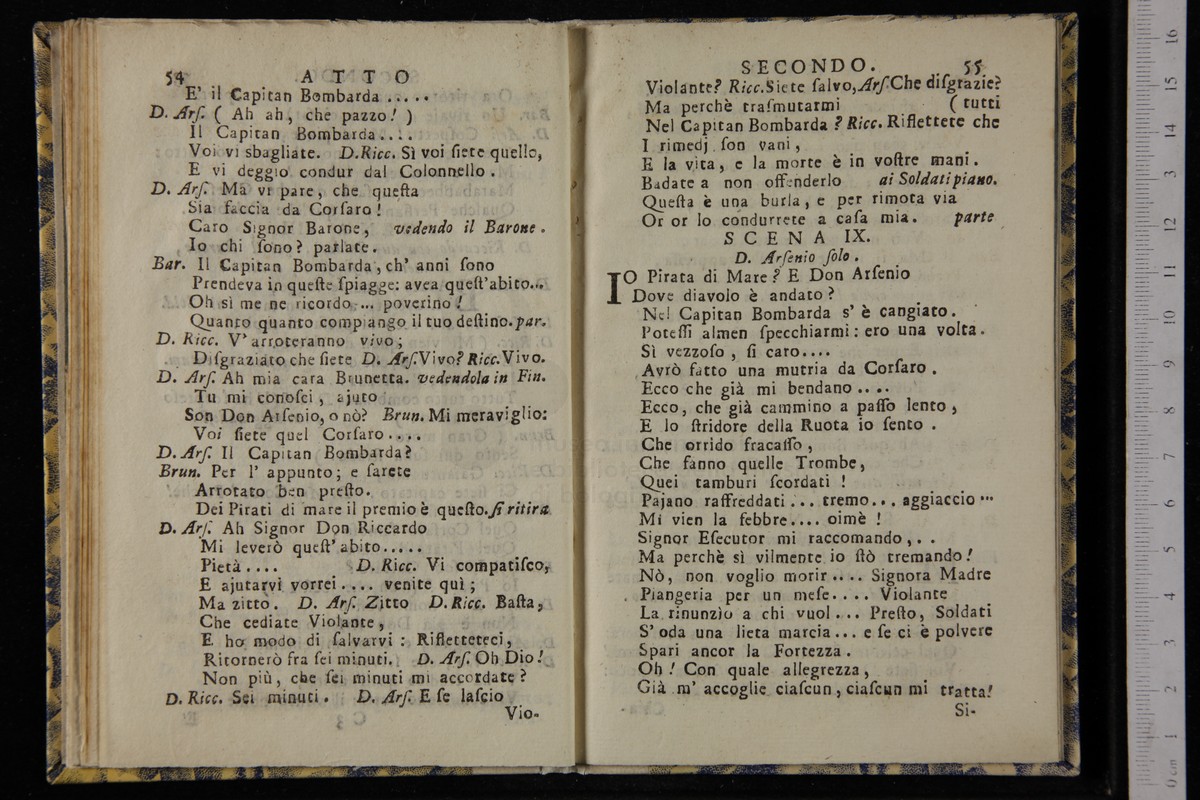 54 ATTO
E' il Capitan Bombarda .....
D. Arſ. ( Ah ah, che pazzo! )
Il Capitan Bombarda....
Voi vi sbagliate. D.Ricc. Sì voi ſiete quello,
E vi deggio condur dal Colonnello .
D. Arſ. Ma vi pare, che queſta
Sia faccia da Corſaro !
Caro Signor Barone, vedendo il Barone .
Io chi ſono? parlate.
Bar. Il Capitan Bombarda, ch' anni ſono
Prendeva in queſte ſpiagge: avea queſt'abito...
Oh sì me ne ricordo .... poverino !
Quanto quanto compiango il tuo deſtino. par.
D. Ricc. V' arroteranno vivo ;
Diſgraziato che ſiete D. Arſ.Vivo? Ricc.Vivo.
D. Arſ. Ah mia cara Brunetta. vedendola in Fin.
Tu mi conoſci , ajuto
Son Don Arſenio, o nò? Brun. Mi meraviglio:
Voi ſiete quel Corſaro ....
D. Arſ. Il Capitan Bombarda?
Brun. Per l' appunto; e ſarete
Arrotato ben preſto.
Dei Pirati di mare il premio è queſto. ſi ritira
D. Arſ. Ah Signor Don Riccardo
Mi leverò queſt' abito.....
Pietà .... D. Ricc. Vi compatiſco,
E ajutarvi vorrei .... venite quì ;
Ma zitto. D. Arſ. Zitto D. Ricc. Baſta,
Che cediate Violante,
E ho modo di ſalvarvi : Rifletteteci,
Ritornerò fra ſei minuti. D. Arſ. Oh Dio !
Non più, che ſei minuti mi accordate ?
D. Ricc. Sei minuti . D. Arſ. E ſe laſcio
Vio-
SECONDO. 55
Violante? Ricc.Siete ſalvo, Arſ.Che diſgrazie?
Ma perchè traſmutarmi ( tutti
Nel Capitan Bombarda ? Ricc. Riflettete che
I rimedj ſon vani ,
E la vita, e la morte è in voſtre mani.
Badate a non offenderlo ai Soldati piano.
Queſta è una burla, e per rimota via
Or or lo condurrete a caſa mia. parte
SCENA IX.
D. Arſenio ſolo .
IO Pirata di Mare ? E Don Arſenio
Dove diavolo è andato ?
Nel Capitan Bombarda s' è cangiato.
Poteſſi almen ſpecchiarmi : ero una volta.
Sì vezzoſo , ſi caro....
Avrò fatto una mutria da Corſaro .
Ecco che già mi bendano ....
Ecco, che già cammino a paſſo lento ,
E lo ſtridore della Ruota io ſento .
Che orrido fracaſſo ,
Che fanno quelle Trombe,
Quei tamburi ſcordati !
Pajano raffreddati ... tremo... aggiaccio ...
Mi vien la febbre.... oimè !
Signor Eſecutor mi raccomando , . .
Ma perchè sì vilmente io ſtò tremando !
Nò, non voglio morir .... Signora Madre
Piangeria per un meſe.... Violante
La rinunzio a chi vuol ... Preſto, Soldati
S' oda una lieta marcia ... e ſe ci è polvere
Spari ancor la Fortezza .
Oh ! Con quale allegrezza ,
Già m' accoglie ciaſcun , ciaſcun mi tratta!
Si-